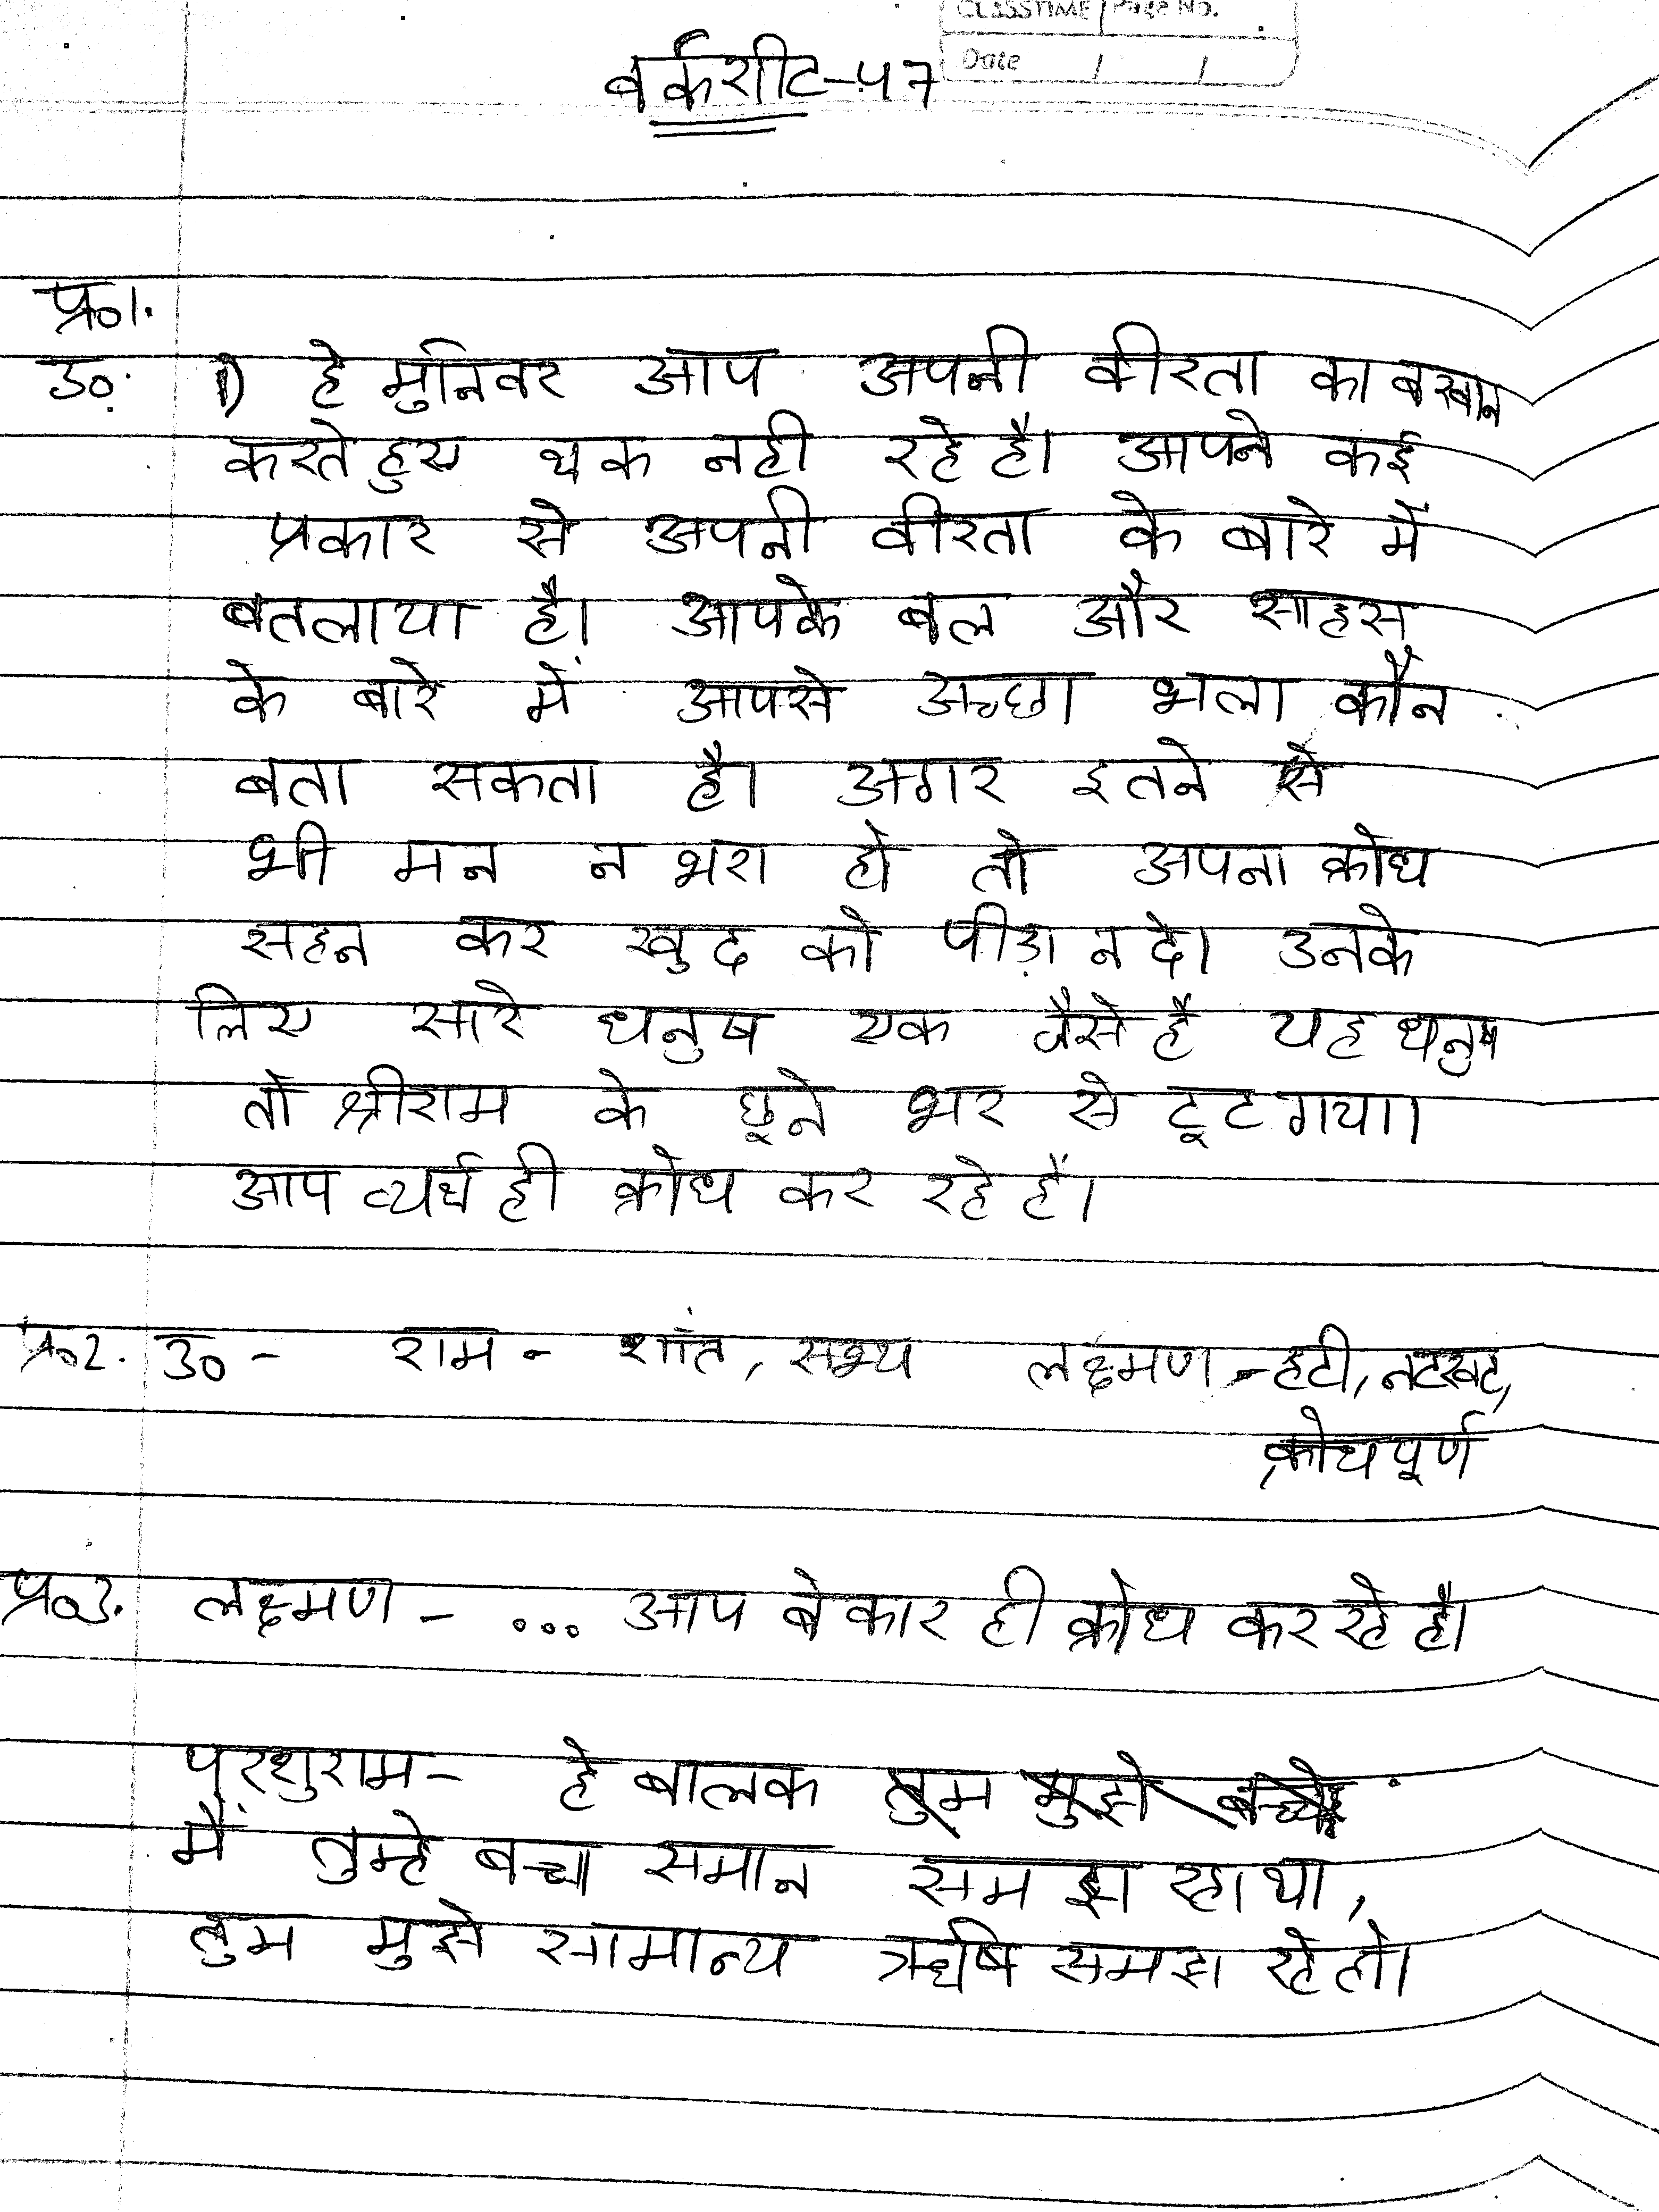 CLASSTIME Page No.
Date / /
वर्कशीट-47
प्र०1.
उ०. 1) हे मुनिवर आप अपनी वीरता का बखान
करते हुए थक नही रहे है। आपने कई
प्रकार से अपनी वीरता के बारे में
बतलाया है। आपके बल और साहस
के बारे में आपसे अच्छा भला कौन
बता सकता है। अगर इतने से
भी मन न भरा हो तो अपना क्रोध
सहन कर खुद को पीड़ा न दे। उनके
लिए सारे धनुष एक जैसे है यह धनुष
तो श्रीराम के छूने भर से टूट गया।
आप व्यर्थ ही क्रोध कर रहे हैं।
प्र०2. उ०- राम - शांत, सभ्य लक्ष्मण - हटी, नटखट,
क्रोधपूर्ण
प्र०3. लक्ष्मण - ... आप बेकार ही क्रोध कर रहे है।
परशुराम- हे बालक तुम मुझे बच्चे
में तुम्हे बच्चा समान समझ रहा था,
तुम मुझे सामान्य ऋषि समझ रहे हो।